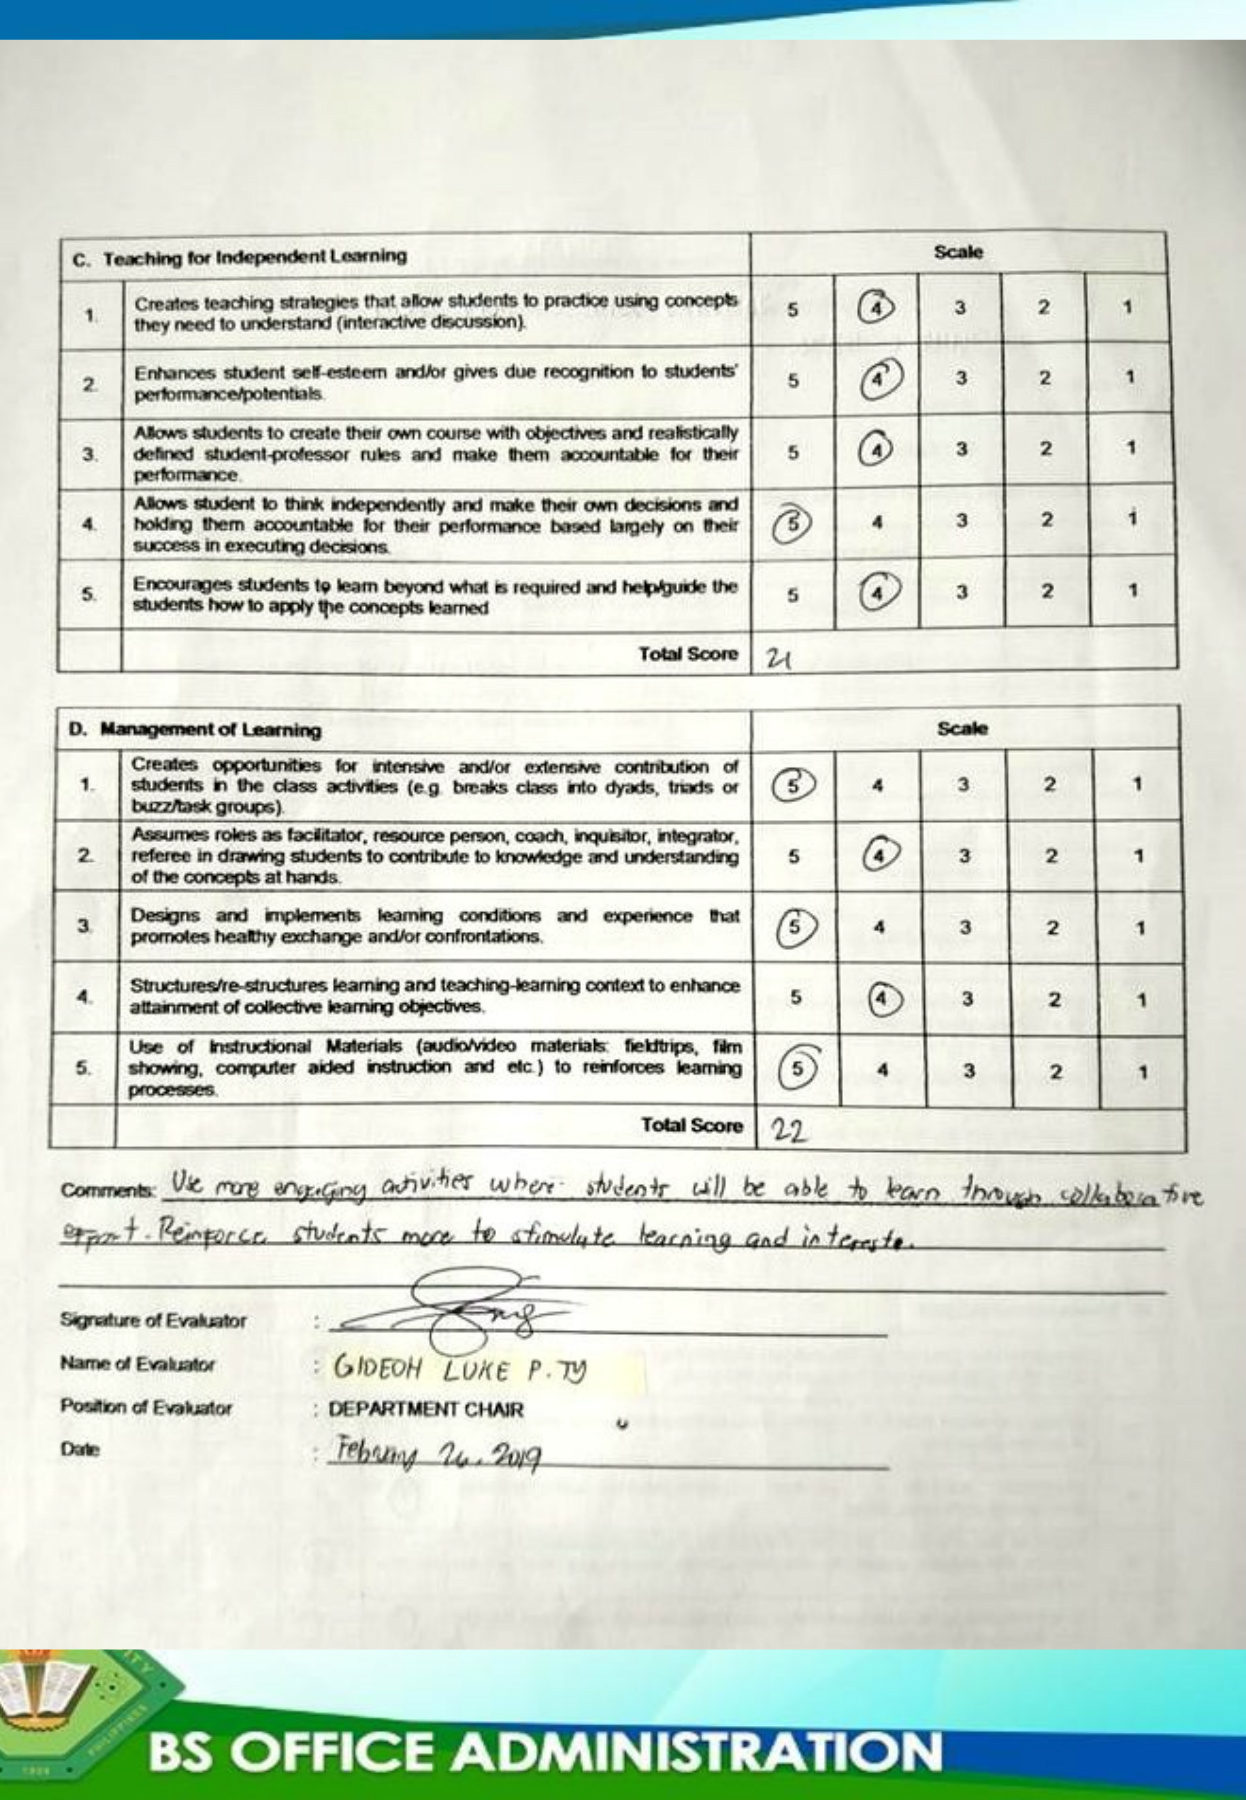 C. Teaching for Independent Learning Scale
1. Creates teaching strategies that allow students to practice using concepts 5 4 3 2 1
they need to understand (interactive discussion).
2. Enhances student self-esteem and/or gives due recognition to students' 5 4 3 2 1
performance/potentials.
Allows students to create their own course with objectives and realistically
3. defined student-professor rules and make them accountable for their 5 4 3 2 1
performance.
Allows student to think independently and make their own decisions and
4. holding them accountable for their performance based largely on their 5 4 3 2 1
success in executing decisions.
5. Encourages students to learn beyond what is required and help/guide the 5 4 3 2 1
students how to apply the concepts learned
Total Score 21
D. Management of Learning Scale
Creates opportunities for intensive and/or extensive contribution of
1. students in the class activities (e.g. breaks class into dyads, triads or 5 4 3 2 1
buzz/task groups).
Assumes roles as facilitator, resource person, coach, inquisitor, integrator,
2. referee in drawing students to contribute to knowledge and understanding 5 4 3 2 1
of the concepts at hands.
3. Designs and implements learning conditions and experience that 5 4 3 2 1
promotes healthy exchange and/or confrontations.
4. Structures/re-structures learning and teaching-learning context to enhance 5 4 3 2 1
attainment of collective learning objectives.
Use of Instructional Materials (audio/video materials: fieldtrips, film
5. showing, computer aided instruction and etc.) to reinforces learning 5 4 3 2 1
processes.
Total Score 22
Comments: Use more engaging activities where students will be able to learn through collaborative
effort. Reinforce students more to stimulate learning and interests.
Signature of Evaluator :
Name of Evaluator : GIDEOH LUKE P. TY
Position of Evaluator : DEPARTMENT CHAIR
Date : February 26, 2019
ITY
PHILIPPINES
BS OFFICE ADMINISTRATION